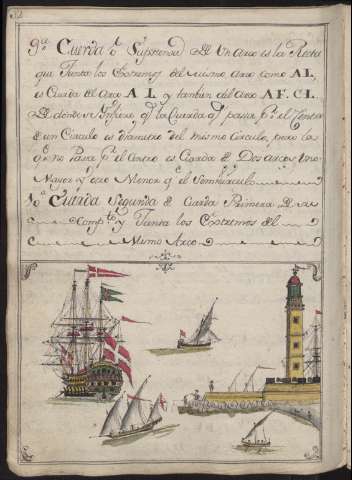 32
9.ª Cuerda ò Suptensa de Un Arco es la Recta
que Junta los Extremos del mismo Arco como A L,
es Cuerda del Arco A L y tambien del Arco A F. C L
De donde se Ynfiere q.e la Cuerda q.e pasa p.r el Centro
de un Circulo es diametro del mismo Circulo, pero la
q.e no Pasa p.r el Centro es Cuerda de Dos arcos, Uno
Mayor y otro Menor q.e el Semicirculo
10.ª Cuerda Segunda de Cuerda Primera de su
Comp.to y Junta los Extremos del
Mismo Arco